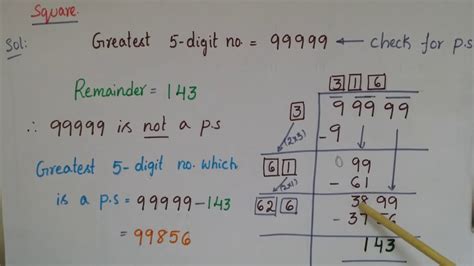 Square.
Sol:
Greatest 5-digit no. = 99999 ← check for p.s
Remainder = 143
∴ 99999 is not a p.s
Greatest 5-digit no. which
is a p.s = 99999-143
= 99856
3 1 6
3
9 99 99
-9
(2x3)
61
0 99
- 61
(2x1)
626
38 99
- 37 56
143